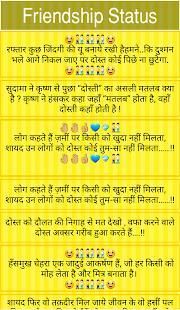 Friendship Status
रफ्तार कुछ जिंदगी की यू बनाये रखी हैहमने..कि दुश्मन
भले आगे निकल जाए पर दोस्त कोई पिछे ना छुटेगा.
सुदामा ने कृष्ण से पुछा "दोस्ती" का असली मतलब क्या
है ? कृष्ण ने हंसकर कहा जहाँ "मतलब" होता है, वहाँ
दोस्ती कहाँ होती है !
लोग कहते हैं ज़मीं पर किसी को खुदा नहीं मिलता,
शायद उन लोगों को दोस्त कोई तुम-सा नहीं मिलता......!!
लोग कहते हैं ज़मीं पर किसी को खुदा नहीं मिलता,
शायद उन लोगों को दोस्त कोई तुम-सा नहीं मिलता.....!!
दोस्त को दौलत की निगाह से मत देखो , वफा करने वाले
दोस्त अक्सर गरीब हुआ करते हैं....!!
हँसमुख चेहरा एक जादुई आकर्षण हैं, जो हर किसी को
मोह लेता है और मित्र बनाता है।
शायद फिर वो तक़दीर मिल जाये जीवन के वो हसीं पल